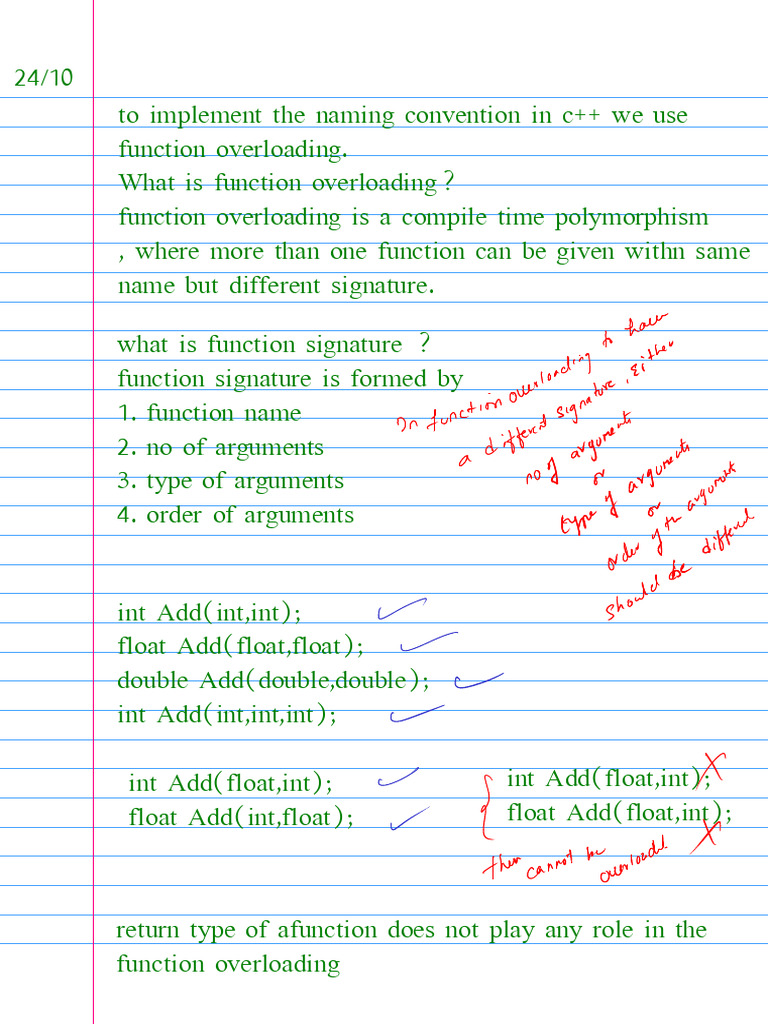 24/10
to implement the naming convention in c++ we use
function overloading.
What is function overloading ?
function overloading is a compile time polymorphism
, where more than one function can be given withn same
name but different signature.
what is function signature ?
function signature is formed by
1. function name
2. no of arguments
3. type of arguments
4. order of arguments
In function overloading to have
a different signature, either
no of arguments
or
type of arguments
or
order of the argument
should be different
int Add(int,int);
float Add(float,float);
double Add(double,double);
int Add(int,int,int);
int Add(float,int);
float Add(int,float);
int Add(float,int);
float Add(float,int);
then cannot be overloaded
return type of afunction does not play any role in the
function overloading